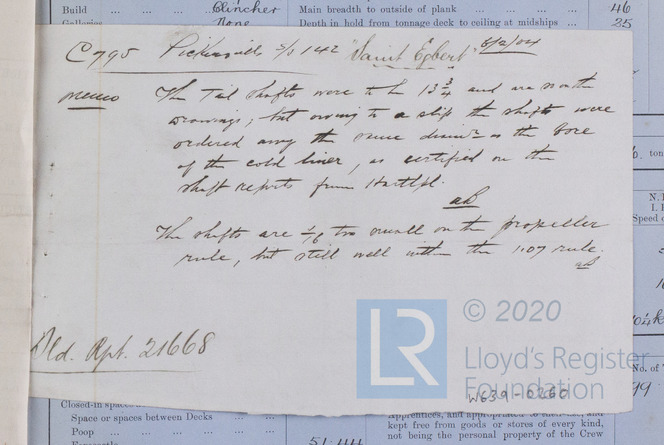 Build ... Clincher
Galleries ... None
Main breadth to outside of plank ... 46
Depth in hold from tonnage deck to ceiling at midships ... 25
C 795 Pickersgills S/S 142 "Saint Egbert" 6/2/04
Memo
The Tail shafts were to be 13 3/4 and are so on the
drawings; but owing to a slip the shafts were
ordered away the same diamr as the bore
of the cold liner, as certified on the
shaft reports from Hartlpl.
The shafts are 1/16 too small on the propeller
rule, but still well within the 1.07 rule.
Old. Rpt. 21668
LR
© 2020
Lloyd's Register
Foundation
W639-0260
ton
N.
I.
Speed o
No. of
99
Closed-in spaces
Space or spaces between Decks ...
Poop ...
51.44
Apprentices, and appropriated to their use, and
kept free from goods or stores of every kind,
not being the personal property of the Crew